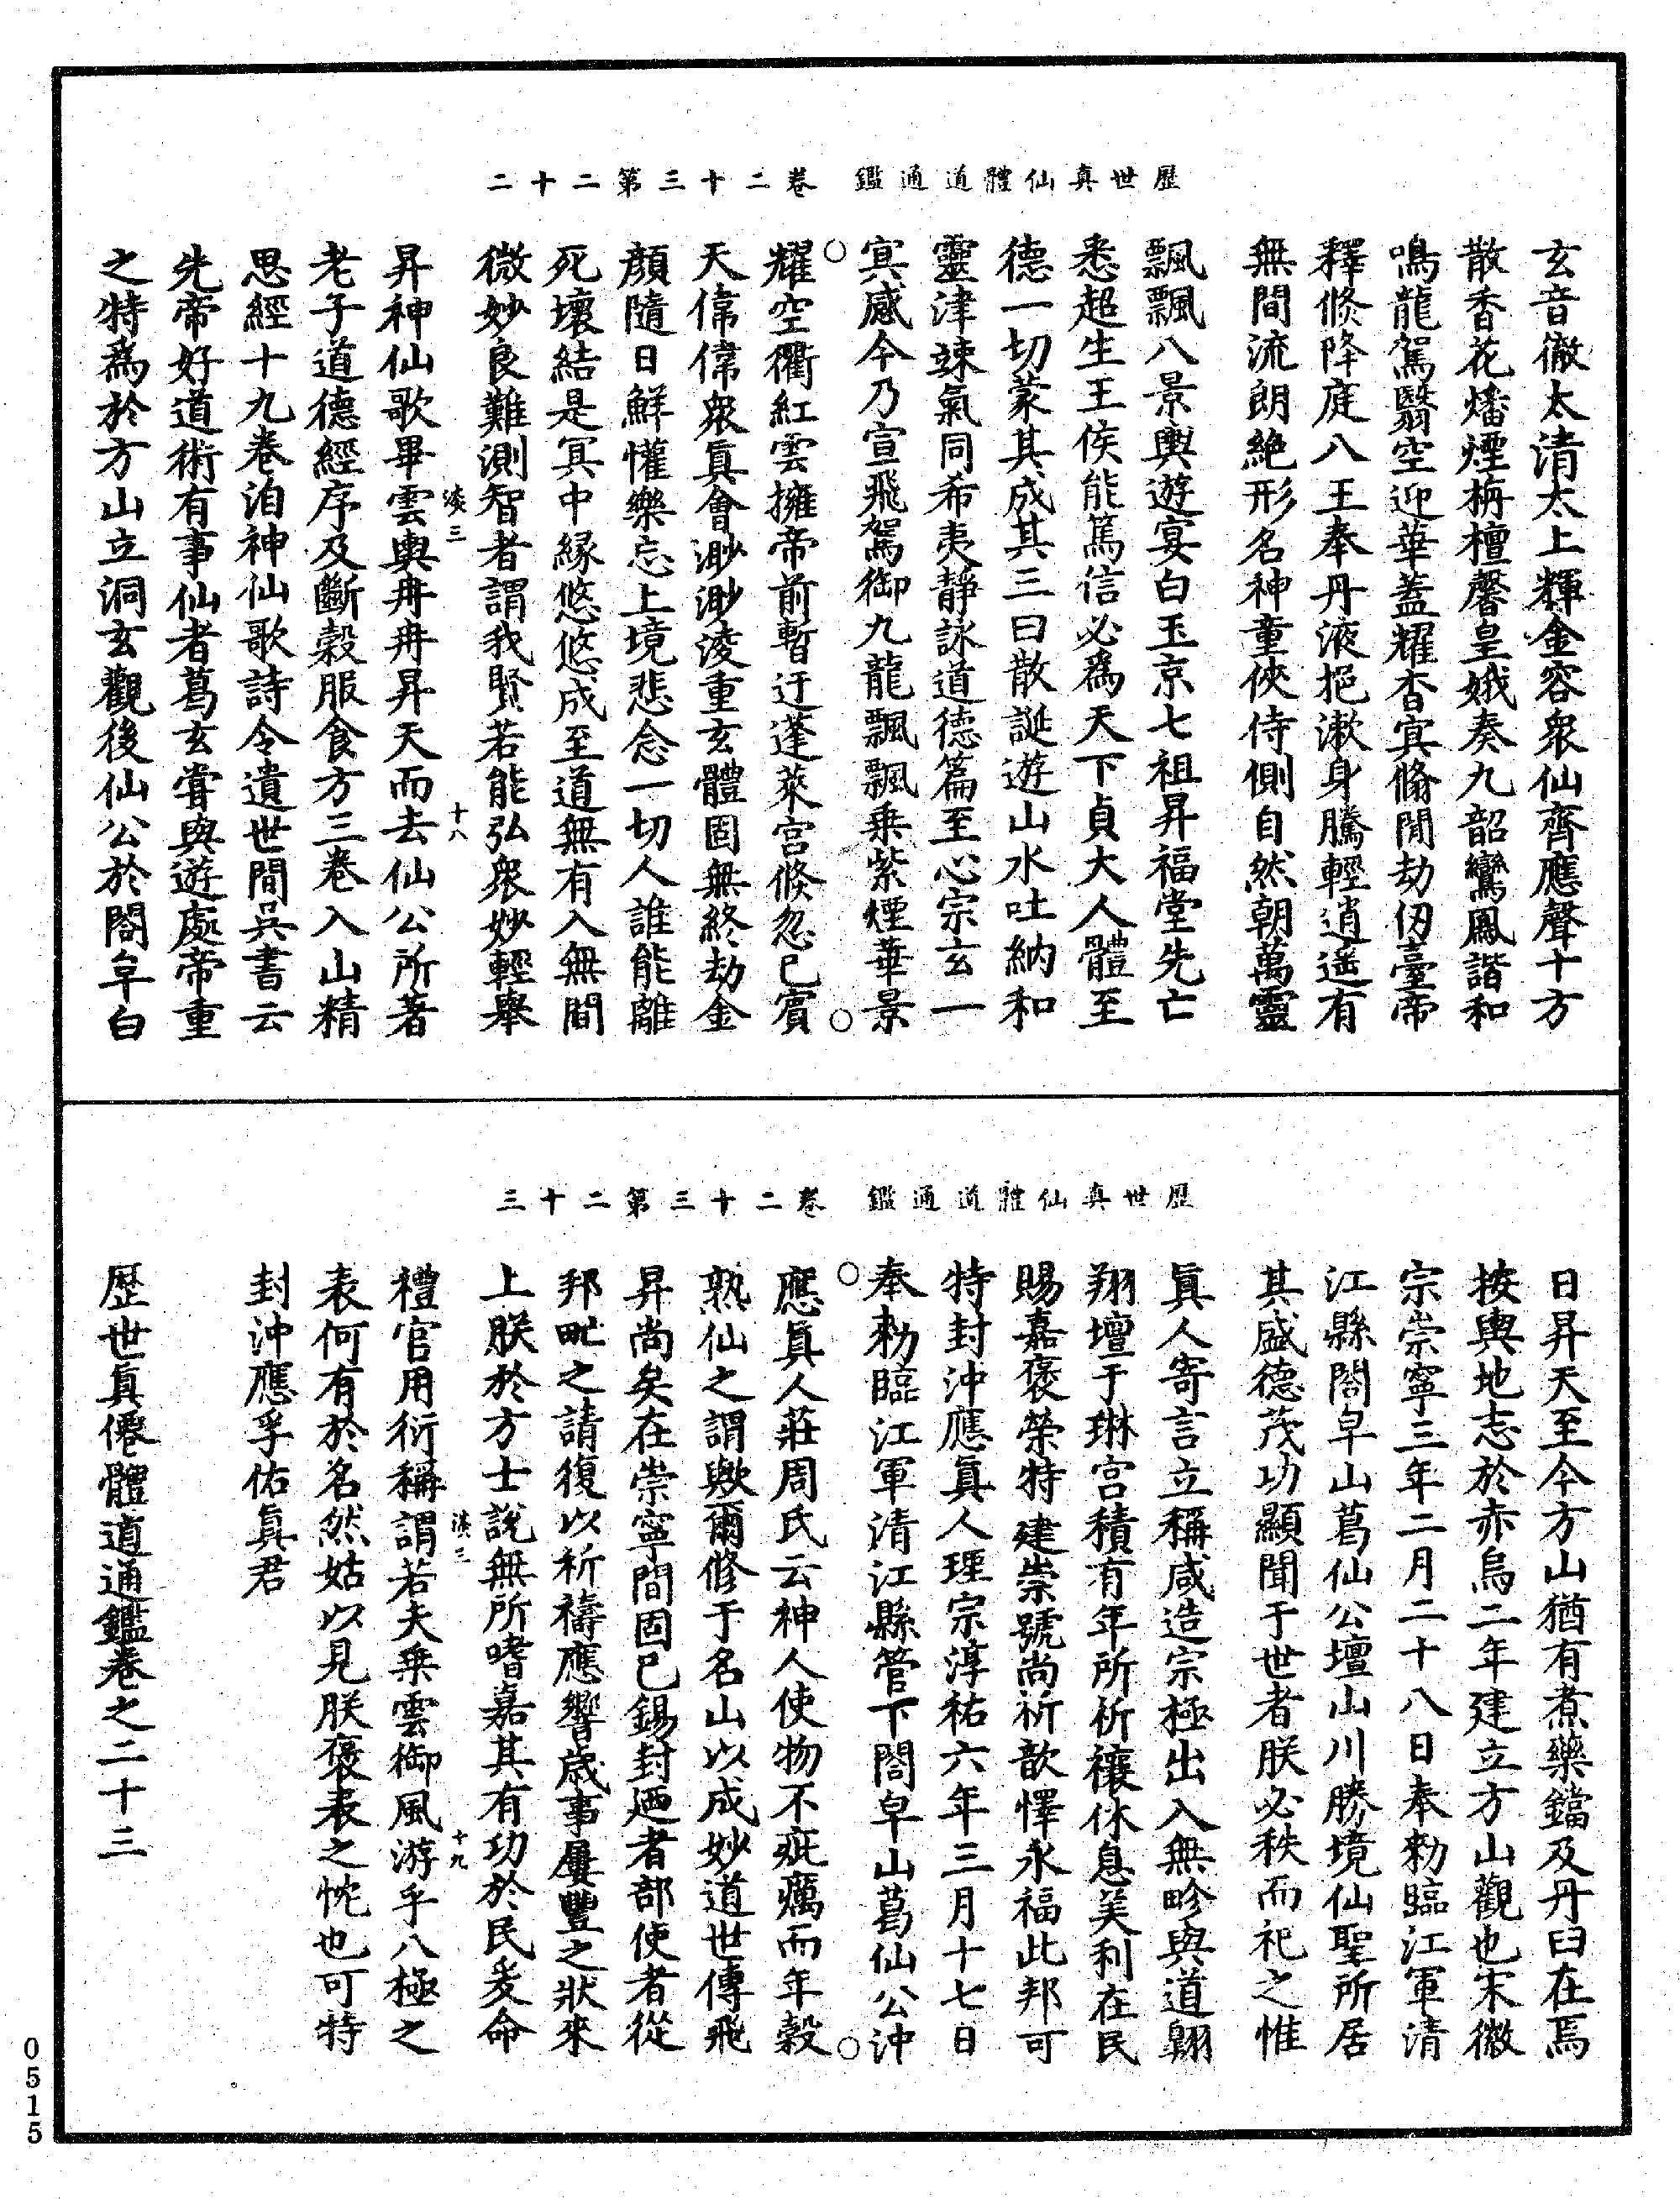 歷世真仙體道通鑑　卷二十三第二十二
玄音徹太清太上輝金容衆仙齊應聲十方
散香花燔煙栴檀馨皇娥奏九韶鸞鳳諧和
鳴龍駕翳空迎華蓋耀杳冥翛閒劫仞臺帝
釋倏降庭八王奉丹液挹漱身騰輕逍遥有
無間流朗絶形名神童俠侍側自然朝萬靈
飄飄八景輿遊宴白玉京七祖昇福堂先亡
悉超生王侯能篤信必爲天下貞大人體至
德一切蒙其成其三曰散誕遊山水吐納和
靈津竦氣同希夷靜詠道德篇至心宗玄一
冥感今乃宣飛駕御九龍飄飄乗紫煙華景
耀空衢紅雲擁帝前暫迂蓬萊宫倏忽已賓
天偉偉衆真會渺渺淩重玄體固無終劫金
顔隨日鮮懽樂忘上境悲念一切人誰能離
死壞結是冥中縁悠悠成至道無有入無間
微妙良難測智者謂我賢若能弘衆妙輕舉
淡三　十八
昇神仙歌畢雲輿冉冉昇天而去仙公所著
老子道德經序及斷榖服食方三卷入山精
思經十九卷洎神仙歌詩令遺世間吳書云
先帝好道術有事仙者葛玄嘗與遊處帝重
之特爲於方山立洞玄觀後仙公於閤皁白
歷世真仙體道通鑑　卷二十三第二十三
日昇天至今方山猶有煮藥鐺及丹臼在焉
按輿地志於赤烏二年建立方山觀也宋徽
宗崇寧三年二月二十八日奉勑臨江軍清
江縣閤皁山葛仙公壇山川勝境仙聖所居
其盛德茂功顯聞于世者朕必秩而祀之惟
眞人寄言立稱咸造宗極出入無畛與道翱
翔壇于琳宫積有年所祈禳休息美利在民
賜嘉褒榮特建崇號尚祈歆懌永福此邦可
特封沖應眞人理宗淳祐六年三月十七日
奉勑臨江軍清江縣管下閤皁山葛仙公沖
應眞人莊周氏云神人使物不疵癘而年穀
熟仙之謂歟爾修于名山以成妙道世傳飛
昇尚矣在崇寧間固已錫封廼者部使者從
邦甿之請復以祈禱應響歳事屢豐之狀來
上朕於方士説無所嗜嘉其有功於民爰命
淡三　十九
禮官用衍稱謂若夫乗雲御風游乎八極之
表何有於名然姑以見朕褒表之忱也可特
封沖應孚佑眞君
歷世眞僊體道通鑑卷之二十三
0515